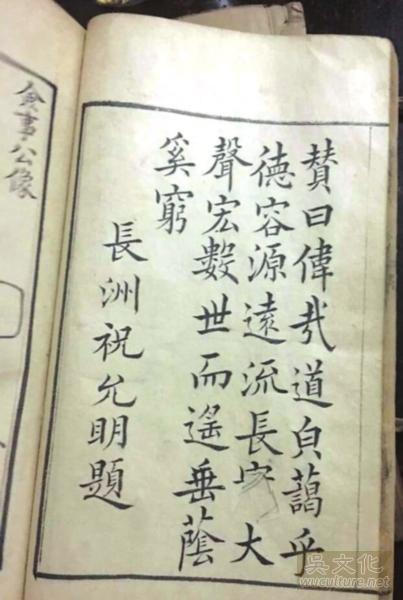 賛曰偉哉道貞藹乎
徳容源遠流長大
聲宏數世而遙垂蔭
奚窮
長洲祝允明題
僉事公像
吳文化
www.wuculture.net